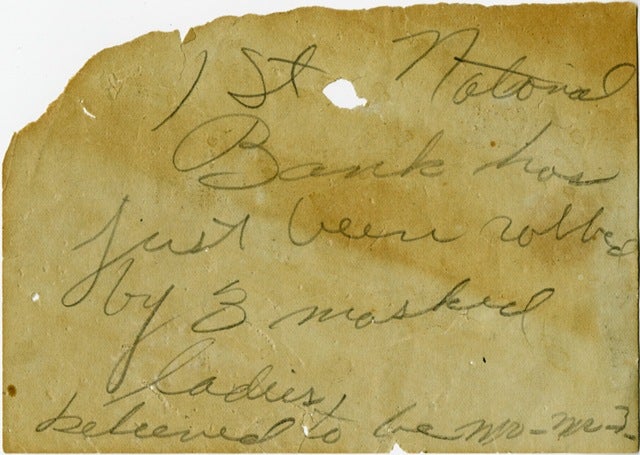 1 St National
Bank has
just been robbed
by 3 masked
ladies,
believed to be